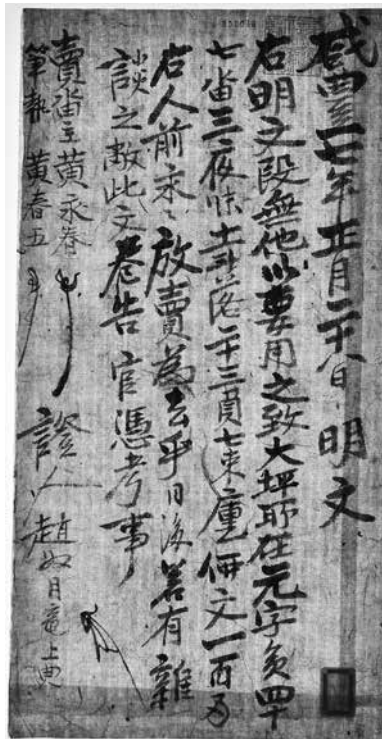 咸豊七年正月二十日 明文
右明文段無他以要用之致大坪所在元字負四十
七畓三夜味斗落二十三負七束㐣併文一百両
右人前永〻放賣為去乎日後若有雜
談之敝此文卷告官憑考事
賣畓主黃永春
筆執 黃春五
證人 趙奴月竜